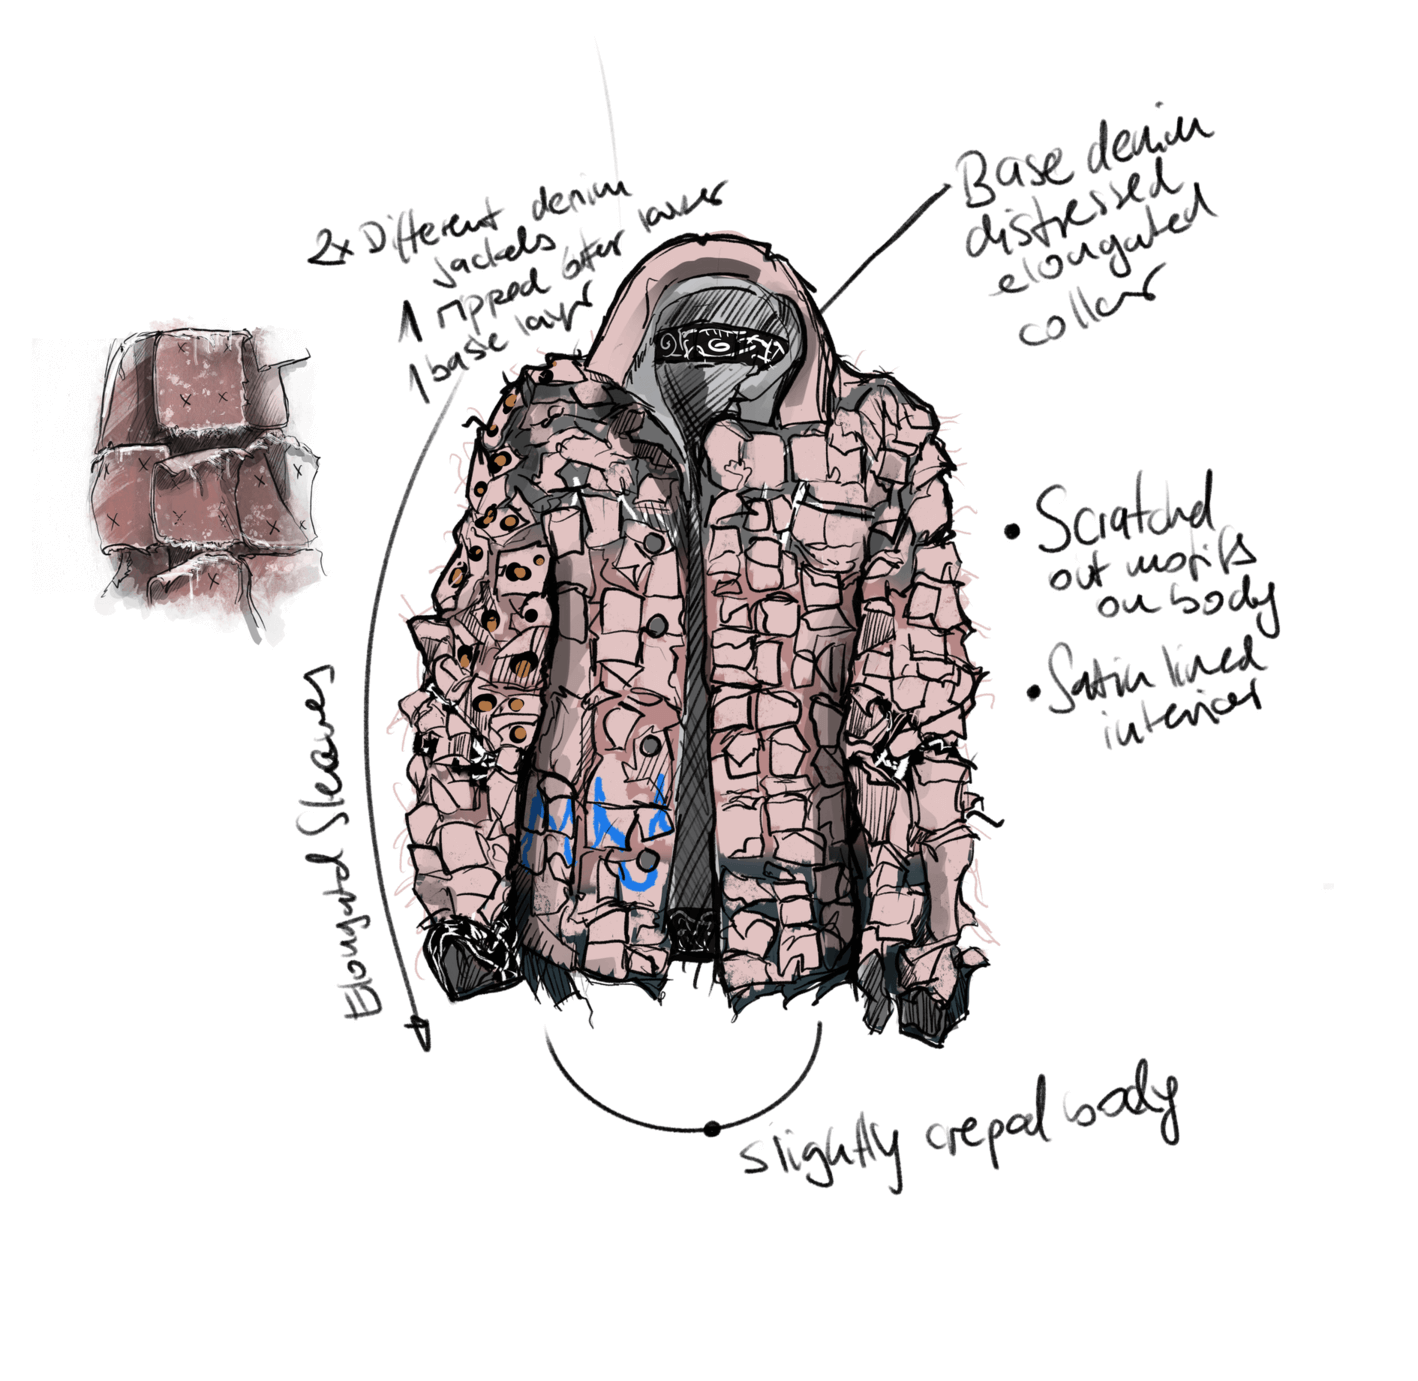 2x Different denim
jackets
1 ripped outer layer
1 base layer
Base denim
distressed
elongated
collar
• Scratched
out motifs
on body
• Satin lined
interior
Elongated Sleaves
slightly croped body